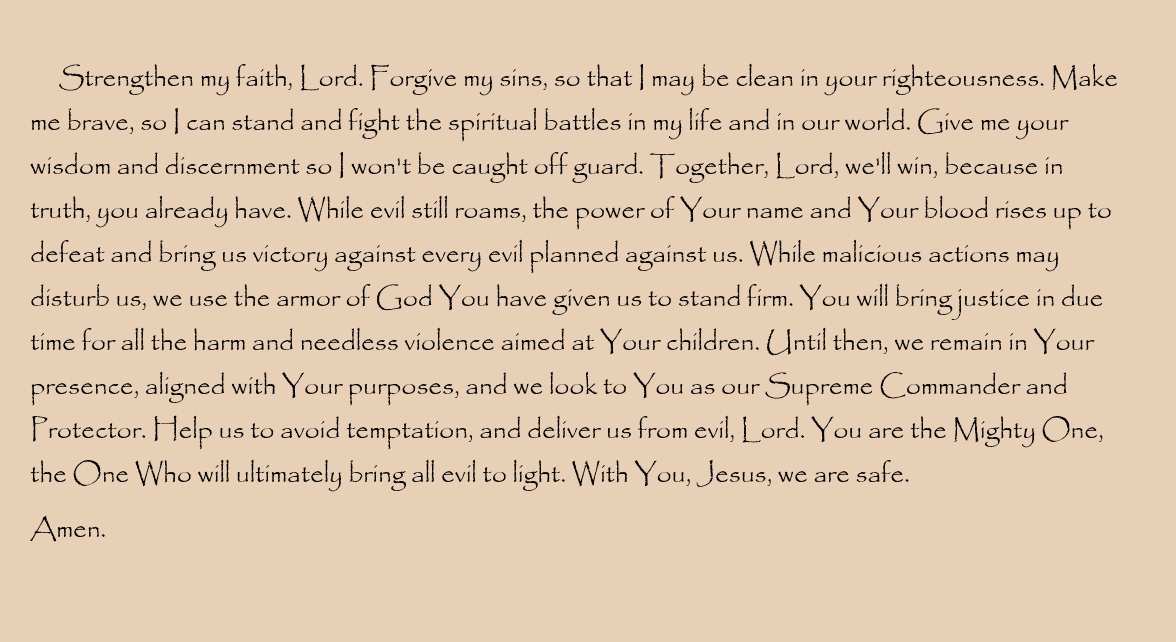 Strengthen my faith, Lord. Forgive my sins, so that I may be clean in your righteousness. Make
me brave, so I can stand and fight the spiritual battles in my life and in our world. Give me your
wisdom and discernment so I won't be caught off guard. Together, Lord, we'll win, because in
truth, you already have. While evil still roams, the power of Your name and Your blood rises up to
defeat and bring us victory against every evil planned against us. While malicious actions may
disturb us, we use the armor of God You have given us to stand firm. You will bring justice in due
time for all the harm and needless violence aimed at Your children. Until then, we remain in Your
presence, aligned with Your purposes, and we look to You as our Supreme Commander and
Protector. Help us to avoid temptation, and deliver us from evil, Lord. You are the Mighty One,
the One Who will ultimately bring all evil to light. With You, Jesus, we are safe.
Amen.